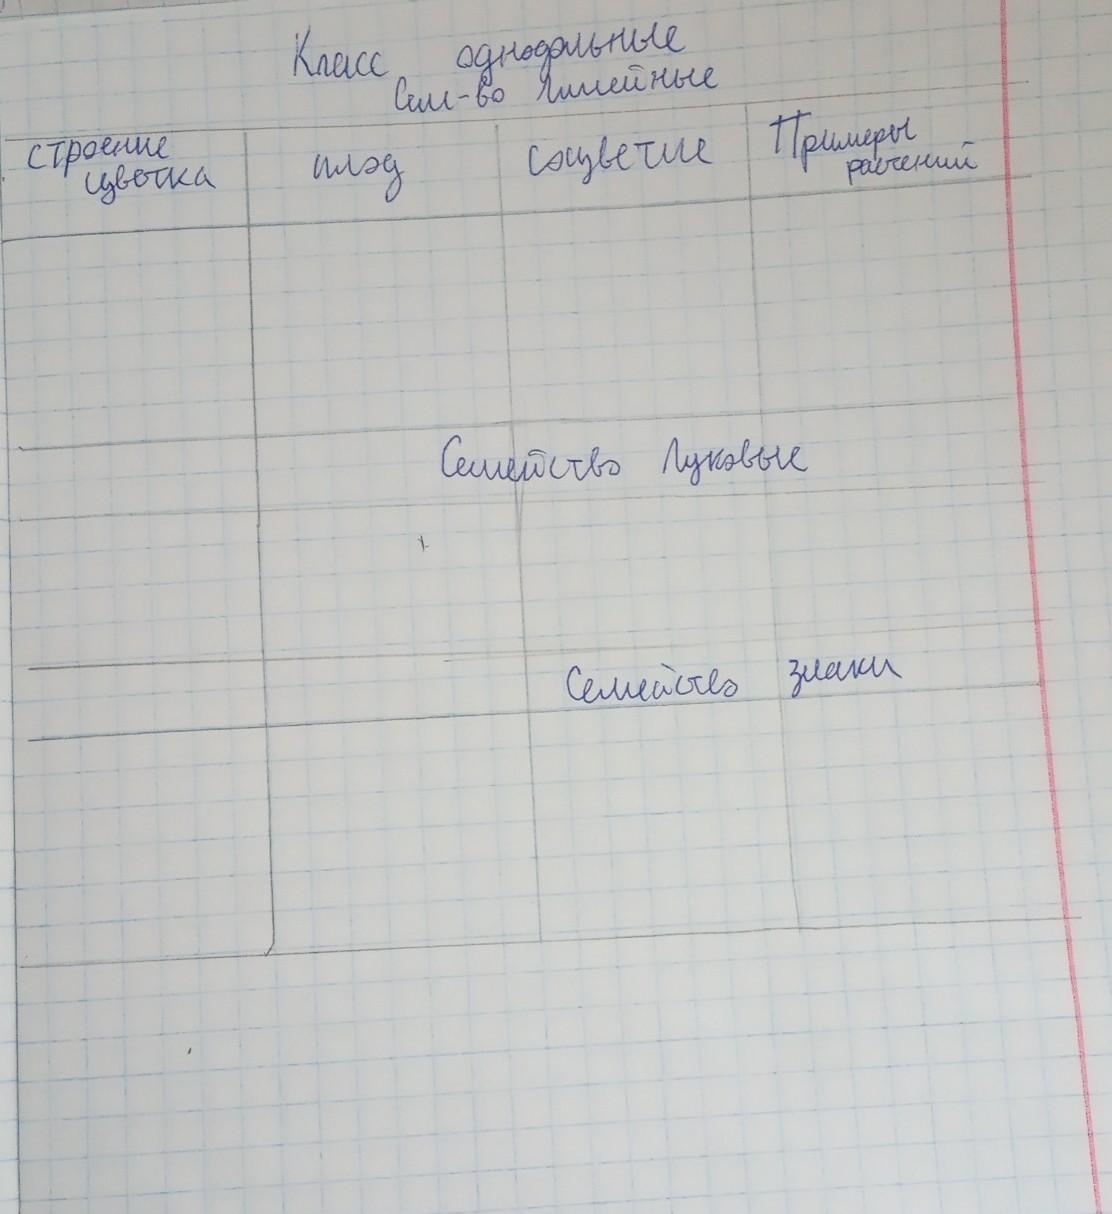 Класс однодольные
Сем-во Лилейные
строение
цветка
плод
соцветие
Примеры
растений
Семейство Луковые
Семейство злаки